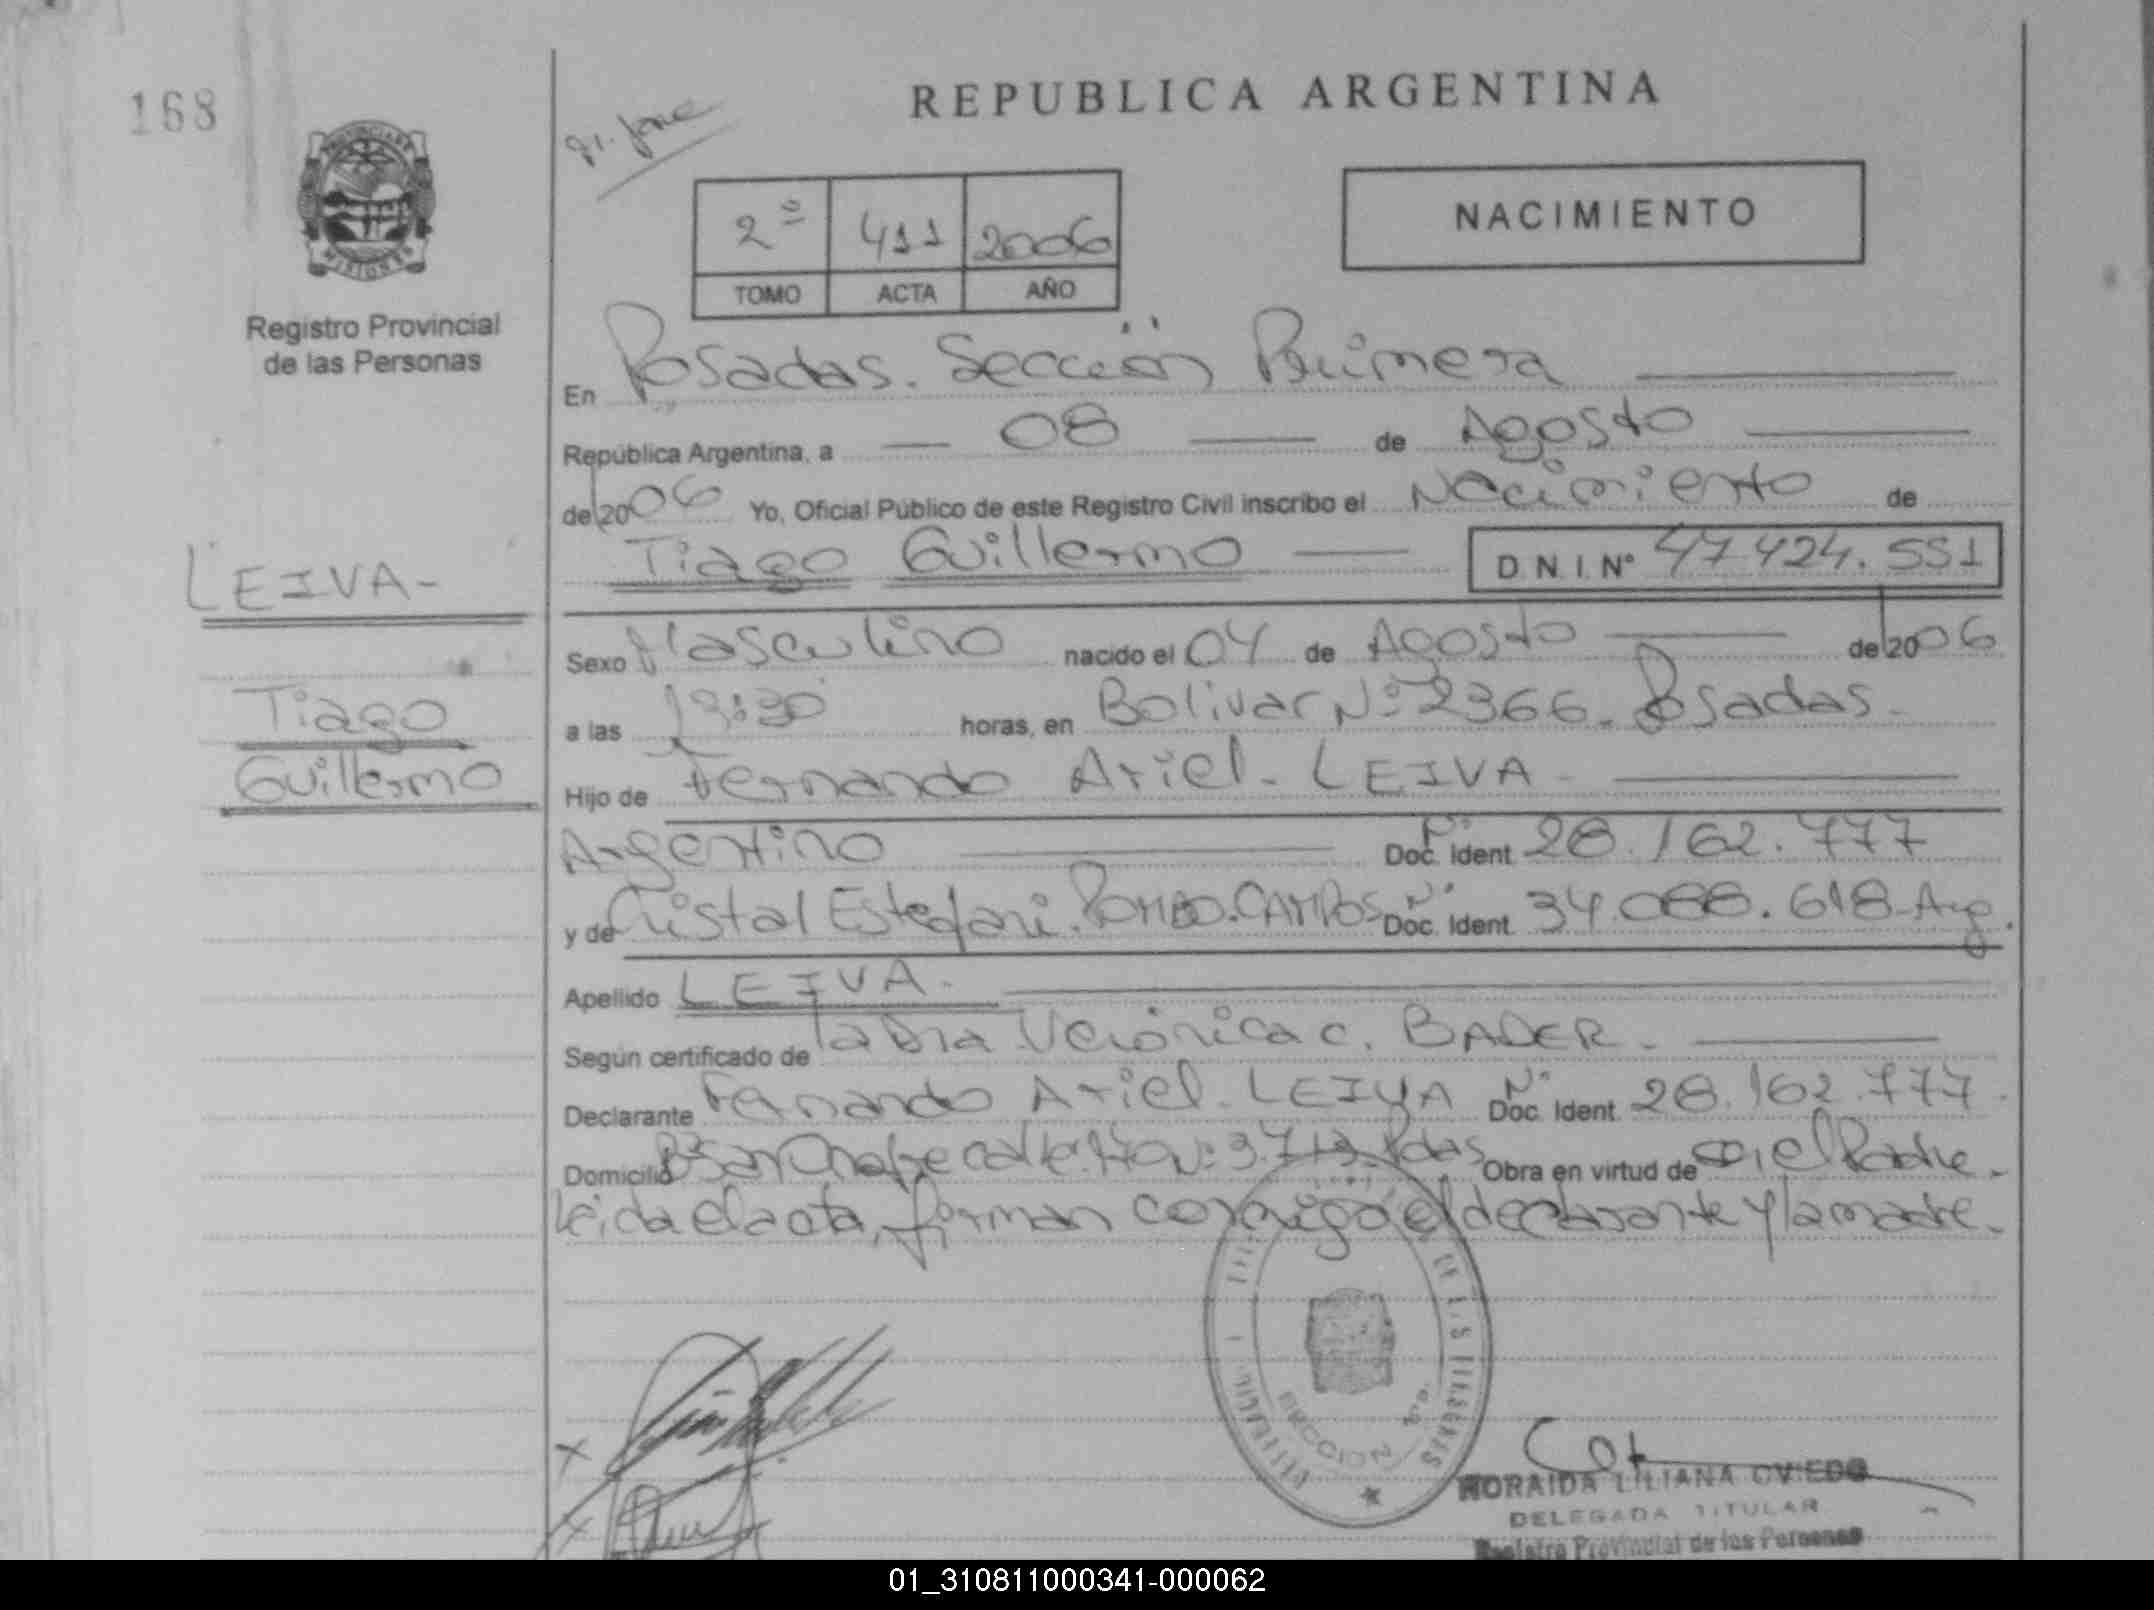 168
REPUBLICA ARGENTINA
PROVINCIA DE
MISIONES
Registro Provincial
de las Personas
2º 411 2006
TOMO ACTA AÑO
NACIMIENTO
En Posadas. Sección Primera
República Argentina, a 08 de Agosto
de 2006 Yo, Oficial Público de este Registro Civil inscribo el Nacimiento de
Tiago Guillermo D.N.I. Nº 47424.551
LEIVA-
Tiago
Guillermo
Sexo Masculino nacido el 04 de Agosto de 2006
a las 19:30 horas, en Bolivar Nº 2366. Posadas.
Hijo de Fernando Ariel- LEIVA-
Argentino Doc. Ident. Nº 28.162.777
y de Cristal Estefani. POMBO.CAMPOS Doc. Ident. Nº 34.088.618-Arg.
Apellido LEIVA-
Según certificado de la Dra Verónica C. BADER-
Declarante Fernando Ariel-LEIVA Doc. Ident. Nº 28.162.777.
Domicilio calle Obra en virtud de el Padre-
Leida el acta, firman conmigo el declarante y la madre.
HORAIDA LILIANA OVIEDO
DELEGADA TITULAR
Registro Provincial de las Personas
01_310811000341-000062